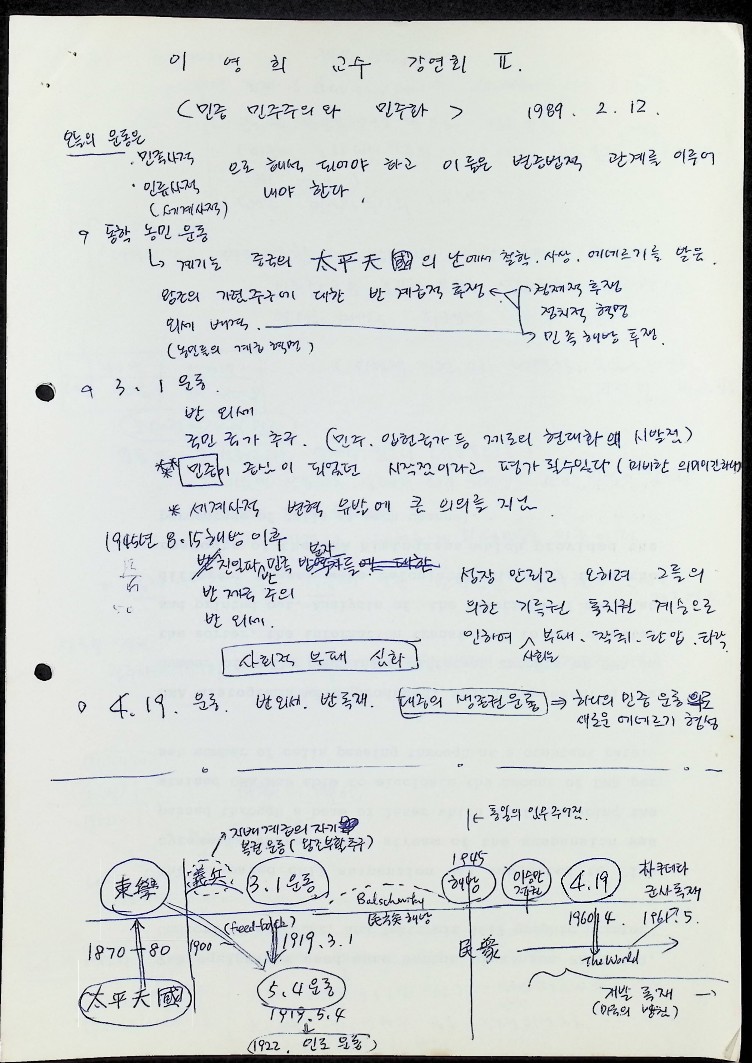 이 영 희 교수 강연회 Ⅱ.
<민중 민주주의와 민주화> 1989. 2. 12.
오늘의 운동은
· 민족사적
· 인류사적
(세계사적)
으로 해석 되어야 하고 이 둘은 변증법적 관계를 이루어
내야 한다.
동학 농민 운동
↳ 계기는 중국의 太平天國의 난에서 철학. 사상. 에네르기를 받음.
왕조의 가렴주구에 대한 반 계급적 투쟁
경제적 투쟁
정치적 혁명
외세 배격.
→ 민족해방 투쟁.
(농민들의 계급 혁명)
3. 1 운동.
반 외세
국민 국가 추구. (민주. 입헌국가 등 제로의 현대화 시발점)
** 민중이 중심이 되었던 시작점이라고 평가 될수있다 (미비한 의미이긴하나)
* 세계사적 변혁 유발에 큰 의의를 지님
1945년 8.15 해방 이후
친일파 민족 반
반 제국 주의
반 외세.
성장 안되고 오히려 그들의
의한 기득권 통치권 계승으로
인하여 사회는 부패. 착취. 탄압. 타락.
사회적 부패 심화
o 4.19. 운동. 반외세. 반독재. 대중의 생존권운동 ⇒ 하나의 민중 운동으로
새로운 에네르기 형성
지배계급의 자기
복권 운동 (왕조부활추구)
통일의 임무주어짐.
東學
義兵
3.1운동
1945
해방
이승만
정권
4.19
쿠데타
군사독재
(feed-back)
民衆
1960.4.
1961.5.
1870-80
1900
1919.3.1
The World
太平天國
5.4운동
1919.5.4
개발 독재 →
(1922.